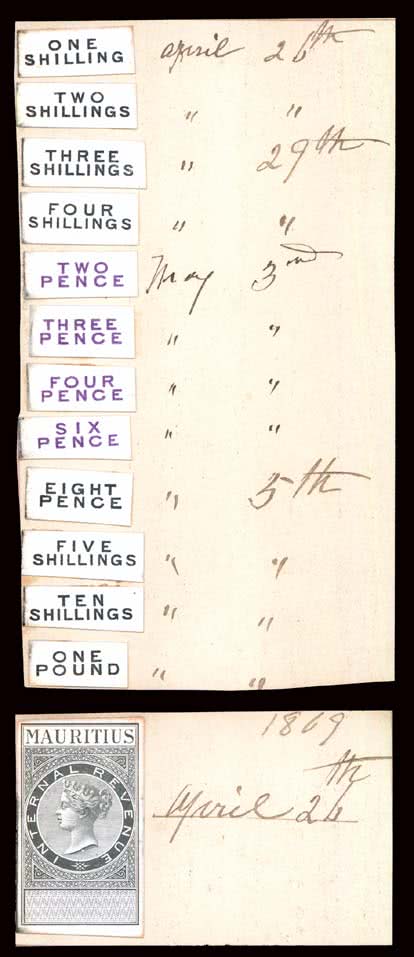 ONE
SHILLING april 26th
TWO
SHILLINGS " "
THREE
SHILLINGS " 29th
FOUR
SHILLINGS " "
TWO
PENCE May 3rd
THREE
PENCE " "
FOUR
PENCE " "
SIX
PENCE " "
EIGHT
PENCE " 5th
FIVE
SHILLINGS " "
TEN
SHILLINGS " "
ONE
POUND " "
1869
MAURITIUS
INTERNAL REVENUE
April 26th